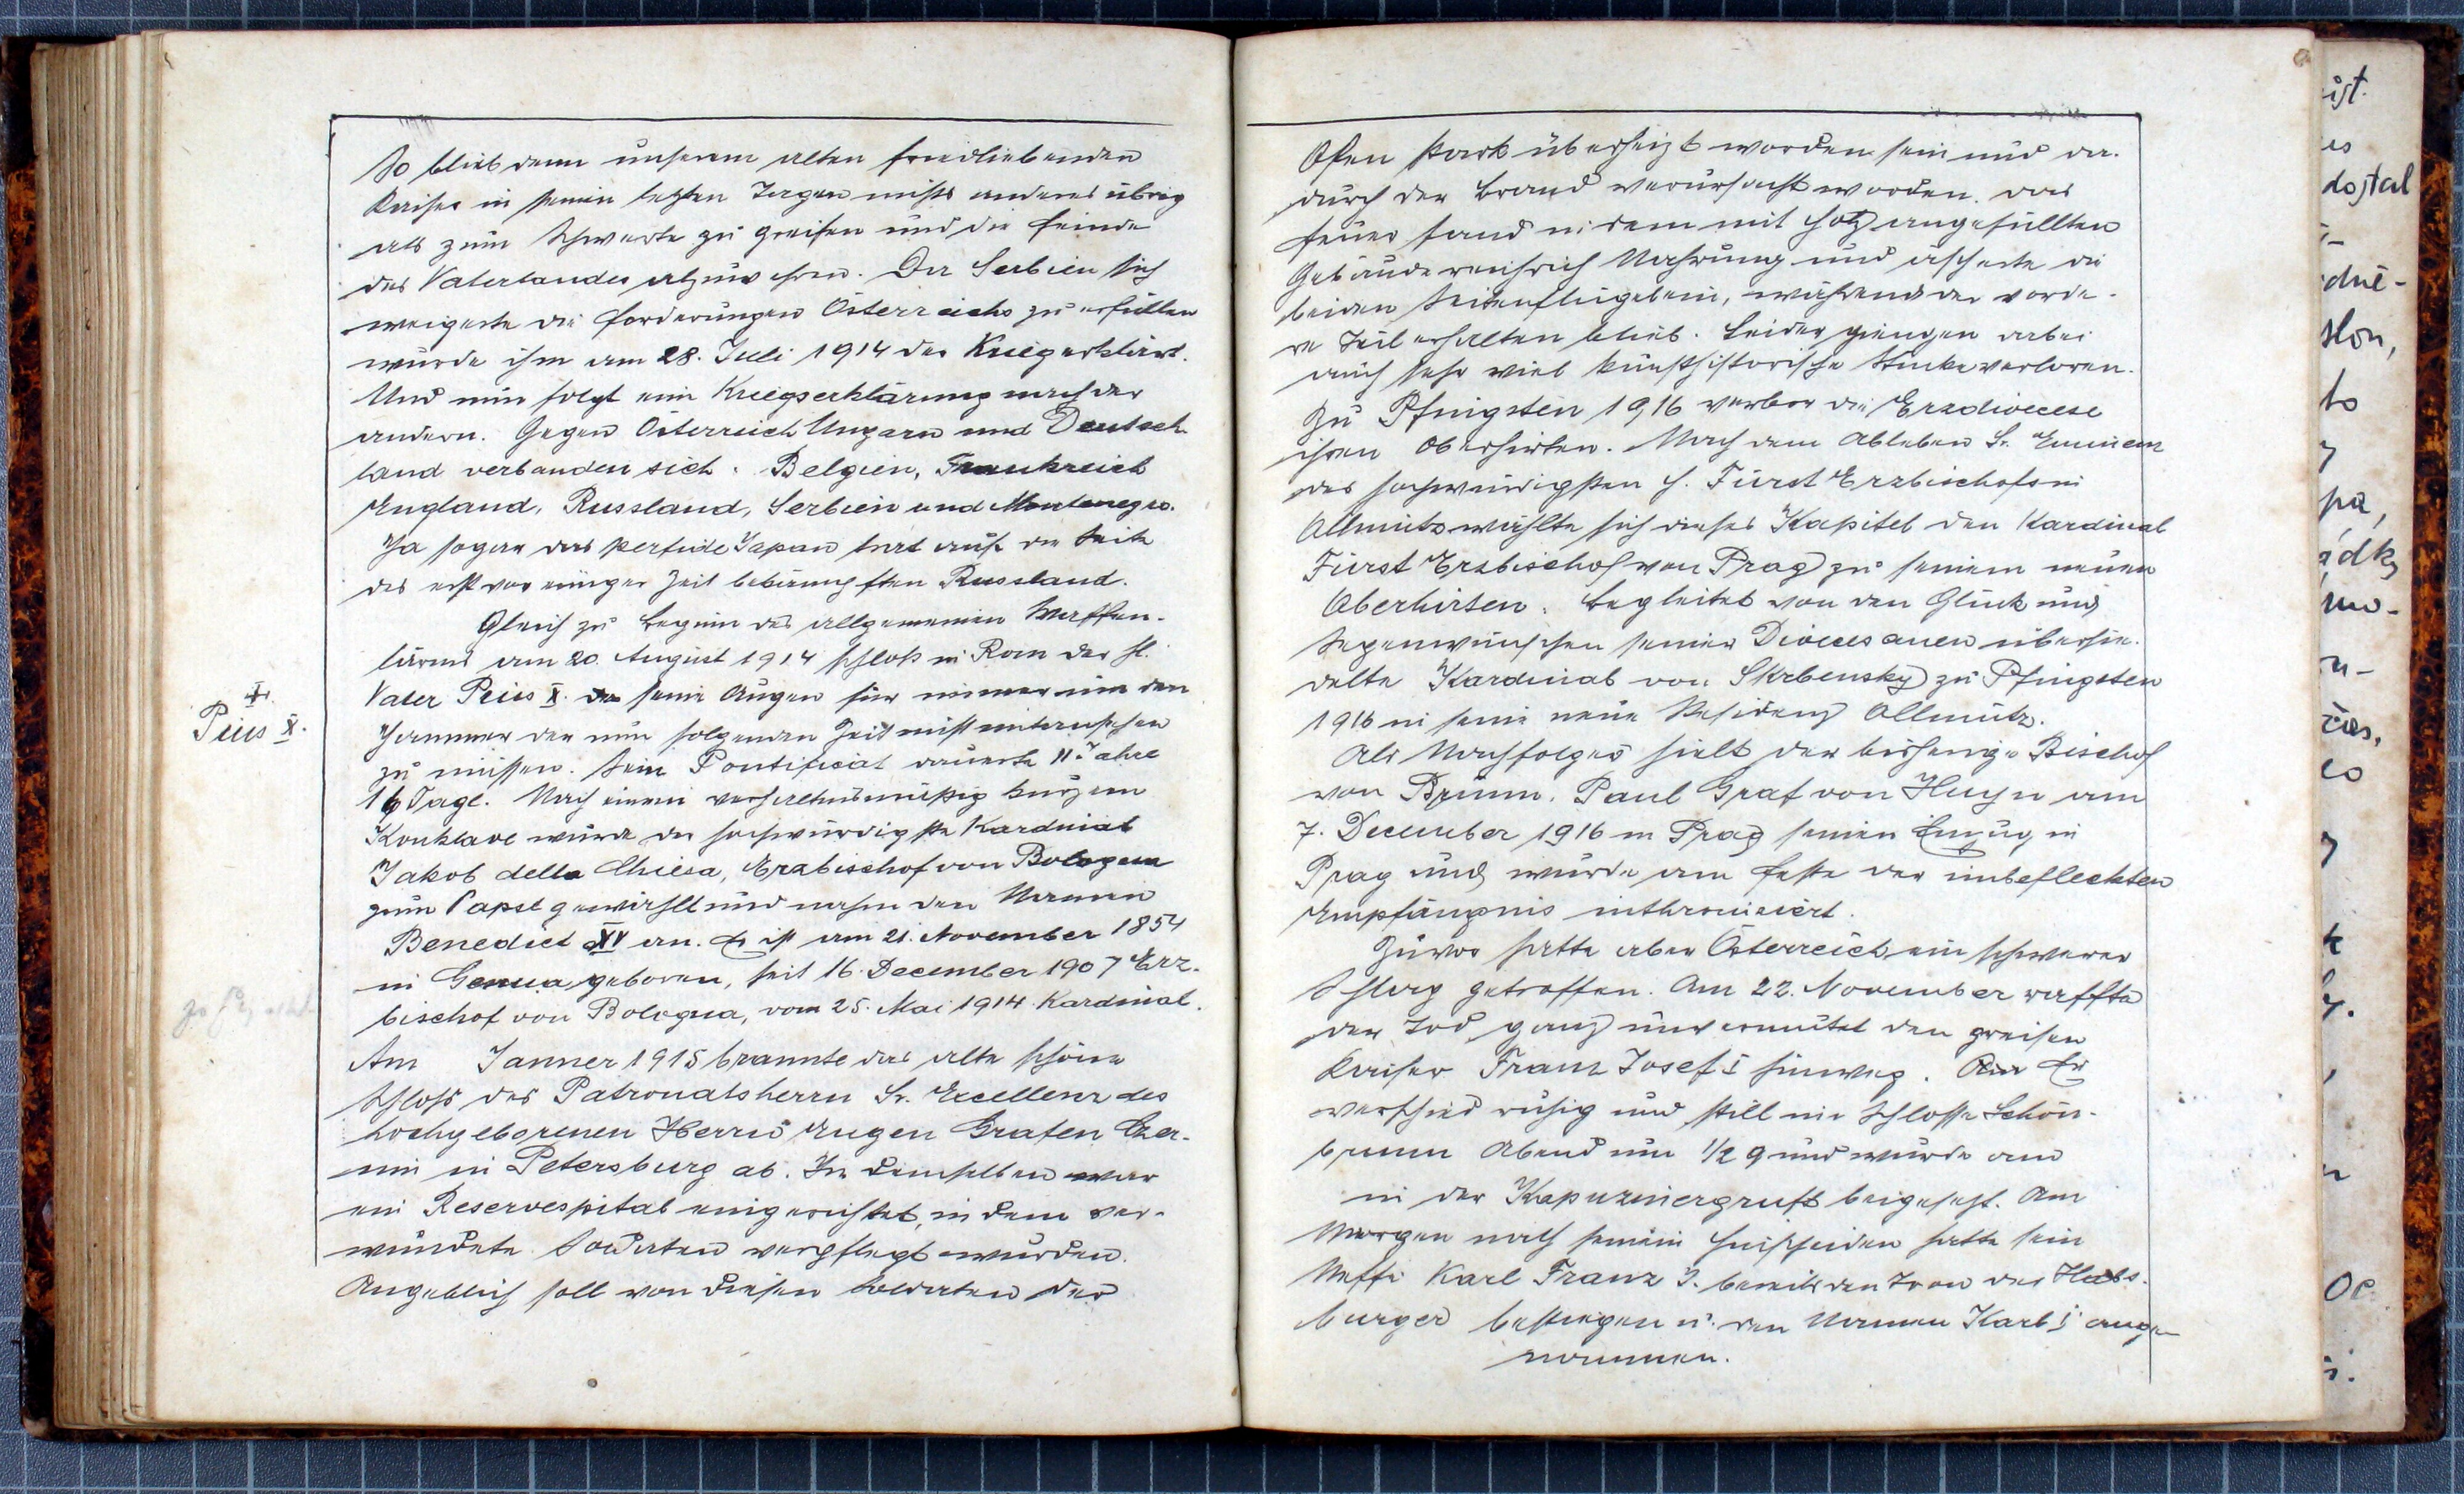 So blieb denn unserem alten friedliebenden
Kaiser in seinen letzten Tagen nichts anderes übrig
als zum Schwerte zu greifen und die Feinde
des Vaterlandes abzuwehren. Da Serbien sich
weigerte die Forderungen Österreichs zu erfüllen
wurde ihm am 28. Juli 1914 der Krieg erklärt.
Und nun folgt eine Kriegserklärung nach der
andern. Gegen Österreich Ungarn und Deutsch
land verbanden sich: Belgien, Frankreich
England, Russland, Serbien und Montenegro.
Ja sogar das perfide Japan trat auf die Seite
des erst vor einiger Zeit bekämpften Russland.
Gleich zu Beginn des allgemeinen Waffen-
lärms am 20. August 1914 schloß in Rom der hl.
Vater Pius X. seine Augen für immer um den
Jammer der nun folgenden Zeit nicht mitansehen
zu müssen. Sein Pontificat dauerte 11 Jahre
16 Tage. Nach einem verhältnismäßig kurzem
Konklave wurde der hochwürdigste Kardinal
Jakob della Chiesa, Erzbischof von Bologna
zum Papst gewählt und nahm den Namen
Benedict XV an. Er ist am 21. November 1854
in Genua geboren, seit 16. December 1907 Erz-
bischof von Bologna, vom 25. Mai 1914 Kardinal.
Am Janner 1915 brannte das alte schöne
Schloß des Patronatsherrn Sr. Excellenz des
hochgeborenen Herrn Eugen Grafen Czer-
nin in Petersburg ab. In demselben war
ein Reservespital eingerichtet, in dem ver-
wundete Soldaten verpflegt wurden.
Angeblich soll von diesen Soldaten der
+
Pius X.
Ofen stark überheizt worden sein und da-
durch der Brand verursacht worden. Das
Feuer fand in dem mit Holz angefüllten
Gebäude reichlich Nahrung und äscherte die
beiden Seitenflügel ein, während der vorde-
re Teil erhalten blieb. Leider giengen dabei
auch sehr viel kunsthistorische Stücke verloren.
Zu Pfingsten 1916 verlor die Erzdiöcese
ihren Oberhirten. Nach dem Ableben Sr. Eminenz
des hochwürdigsten H. Fürst Erzbischofs in
Ollmütz wählte sich dieses Kapitel den Kardinal
Fürst Erzbischof von Prag zu seinem neuen
Oberhirten. Begleitet von den Glück und
Segenwünschen seiner Diöcesanen übersie-
delte Kardinal von Skrbensky zu Pfingsten
1916 in seine neue Residenz Ollmütz.
Als Nachfolger hielt der bisherige Bischof
von Brünn, Paul Graf von Huyn am
7. December 1916 in Prag seinen Einzug in
Prag und wurde am Feste der unbefleckten
Empfängnis inthronisiert.
Zuvor hatte aber Österreich ein schwerer
Schlag getroffen. Am 22. November raffte
der Tod ganz unvermutet den greisen
Kaiser Franz Josef I hinweg. Er
verschied ruhig und still im Schlosse Schön-
brunn Abend um 1/2 9 und wurde am
in der Kapuzinergruft beigesetzt. Am
Morgen nach seinem Hinscheiden hatte sein
Neffe Karl Franz J. bereits den Tron der Habs-
burger bestiegen u. den Namen Karl I ange-
nommen.
ist.
es
dostal
slon,
to
y
pa,